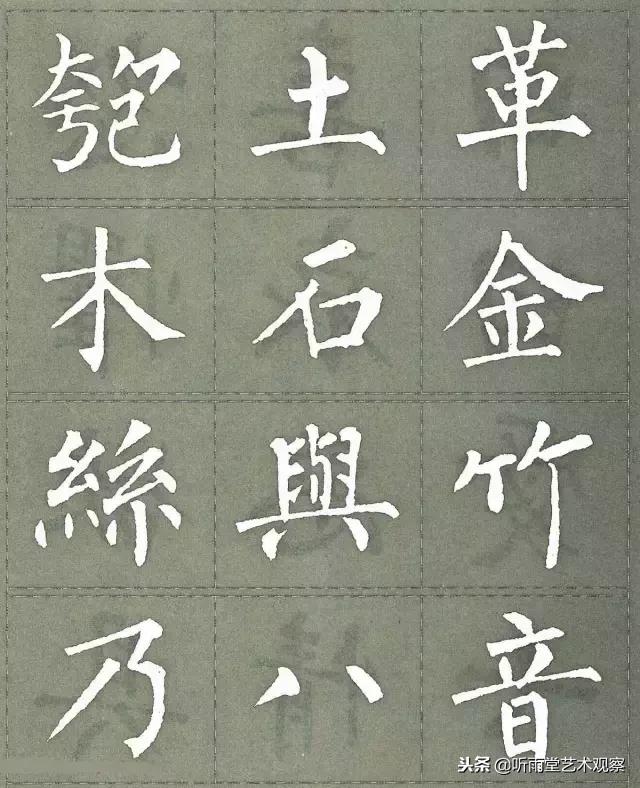 匏土革
木石金
絲與竹
乃八音
头条 @听雨堂艺术观察